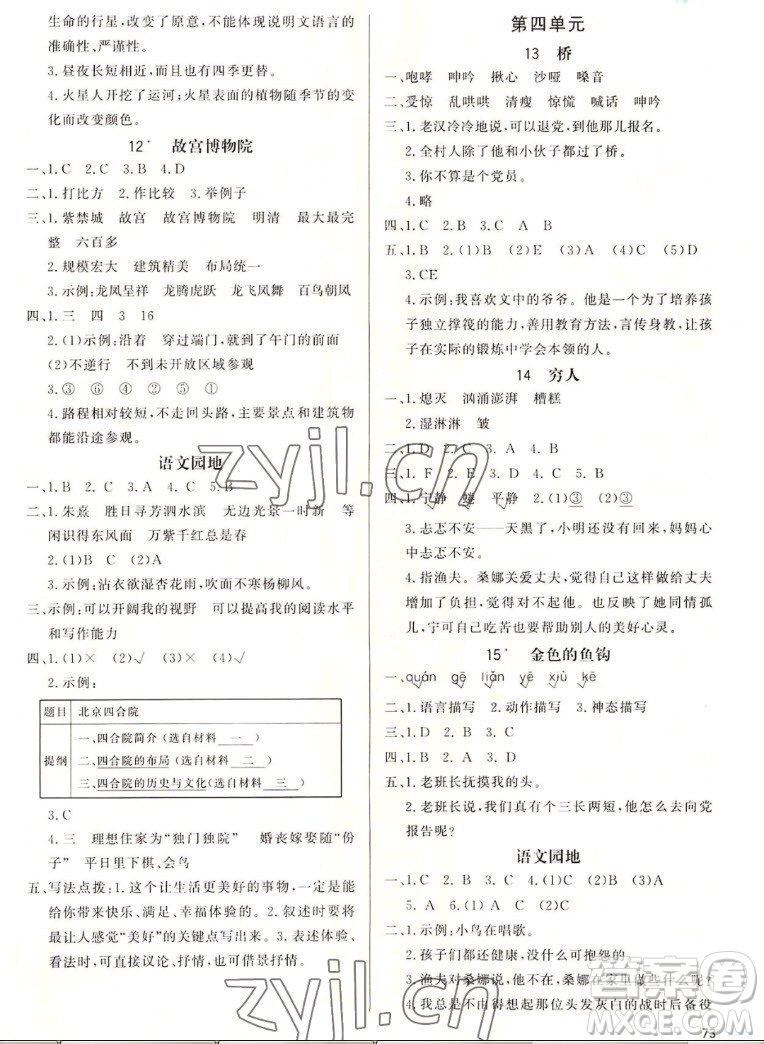 生命的行星,不能够去掉,体现了说明文语言的
准确性、严谨性。
3.昼夜长短相近,而且也有四季更替。
4.火星人开挖了运河;火星表面的植物随季节的变
化而改变颜色。
12* 故宫博物院
一、1.C 2.C 3.B 4.D
二、1.打比方 2.作比较 3.举例子
三、1.紫禁城 故宫 故宫博物院 明清 最大最完
整 六百多
2.规模宏大 建筑精美 布局统一
3.示例:龙凤呈祥 龙腾虎跃 龙飞凤舞 百鸟朝凤
四、1.三 四 3 16
2.(1)示例:沿着 穿过端门,就到了午门的前面
(2)不逆行 不到未开放区域参观
3.③ ⑥ ④ ② ⑤ ①
4.路程相对较短,不走回头路,主要景点和建筑物
都能沿途参观。
语文园地
一、1.B 2.C 3.A 4.C 5.B
二、1.朱熹 胜日寻芳泗水滨 无边光景一时新 等
闲识得东风面 万紫千红总是春
2.(1)B C (2)A
3.示例:沾衣欲湿杏花雨,吹面不寒杨柳风。
三、示例:可以开阔我的视野 可以提高我的阅读水平
和写作能力
四、1.(1)× (2)√ (3)× (4)√
2.示例:
题目 北京四合院
提纲
一、四合院简介(选自材料 一 )
二、四合院的布局(选自材料 二 )
三、四合院的历史与文化(选自材料 三 )
3.C
4.三 理想住家为“独门独院” 婚丧嫁娶随“份
子” 平日里下棋、会鸟
五、写法点拨:1.这个让生活更美好的事物,一定是能
给你带来快乐、满足、幸福体验的。2.叙述时要将
最让人感觉“美好”的关键点写出来。3.表达体验、
看法时,可直接议论、抒情,也可借景抒情。
第四单元
13 桥
一、咆哮 呻吟 揪心 沙哑 嗓音
二、受惊 乱哄哄 清瘦 惊慌 喊话 呻吟
三、1.老汉冷冷地说,可以退党,到他那儿报名。
2.全村人除了他和小伙子都过了桥。
3.你不算个党员。
4.略
四、1.C 2.B 3.C A B
五、1.B 2.(1)B (2)E (3)A (4)C (5)D
3.CE
4.示例:我喜欢文中的爷爷。他是一个为了培养孩
子独立撑筏的能力,善用教育方法,言传身教,让孩
子在实际的锻炼中学会本领的人。
14 穷人
一、1.熄灭 汹涌澎湃 糟糕
2.湿淋淋 皱
二、1.C 2.D 3.A 4.B
三、1.F 2.E 3.A 4.C 5.D 6.B
四、1.宁静 蜷 平静 2.(1)③ (2)③
3.忐忑不安——天黑了,小明还没有回来,妈妈心
中忐忑不安。
4.指渔夫。桑娜关爱丈夫,觉得自己这样做给丈夫
增加了负担,很对不起他。也反映了她同情孤
儿,宁可自己吃苦也要帮助别人的美好心灵。
15* 金色的鱼钩
一、quán gē liǎn yě xiù kē
二、1.语言描写 2.动作描写 3.神态描写
三、1.D 2.B 3.C
四、1.B 2.A 3.C
五、1.老班长抚摸我的头。
2.老班长说,我们真有个三长两短,他怎么去向党
报告呢?
语文园地
一、1.C 2.B 3.C 4.(1)B (2)C (3)A
5.A 6.(1)A (2)C
二、1.示例:小鸟在唱歌。
2.孩子们都还健康,没什么可抱怨的
3.渔夫对桑娜说,他不在,桑娜在家里做些什么呢?
4.我总是不由得想起那位头发灰白的战时后备役
73
zyjl.cn
zyjl.cn
答案圈